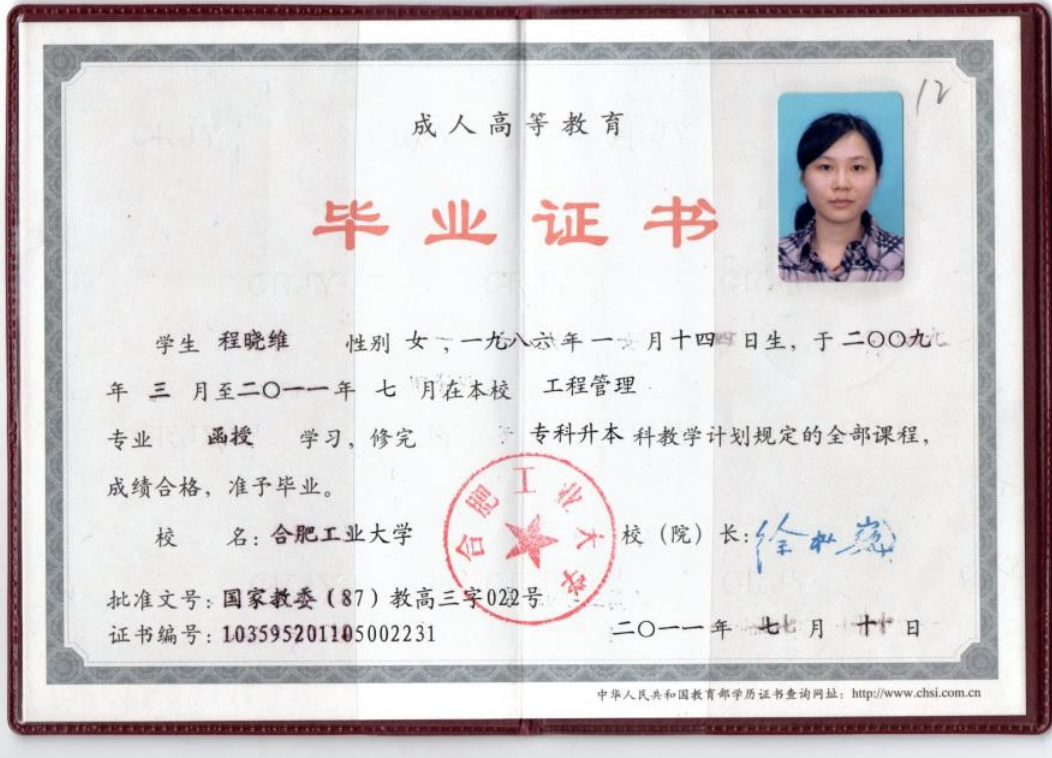 12
成人高等教育
毕业证书
学生 程晓维 性别 女 , 一九八六年 一 月十四日生, 于二〇〇九
年 三 月至二〇一一年 七 月在本校 工程管理
专业 函授 学习, 修完 专科升本 科教学计划规定的全部课程,
成绩合格, 准予毕业。
校 名: 合肥工业大学 校 (院) 长: 徐枞巍
合肥工业大学
批准文号: 国家教委 (87) 教高三字022号
证书编号: 103595201105002231 二〇一一 年 七 月 十 日
中华人民共和国教育部学历证书查询网址: http://www.chsi.com.cn